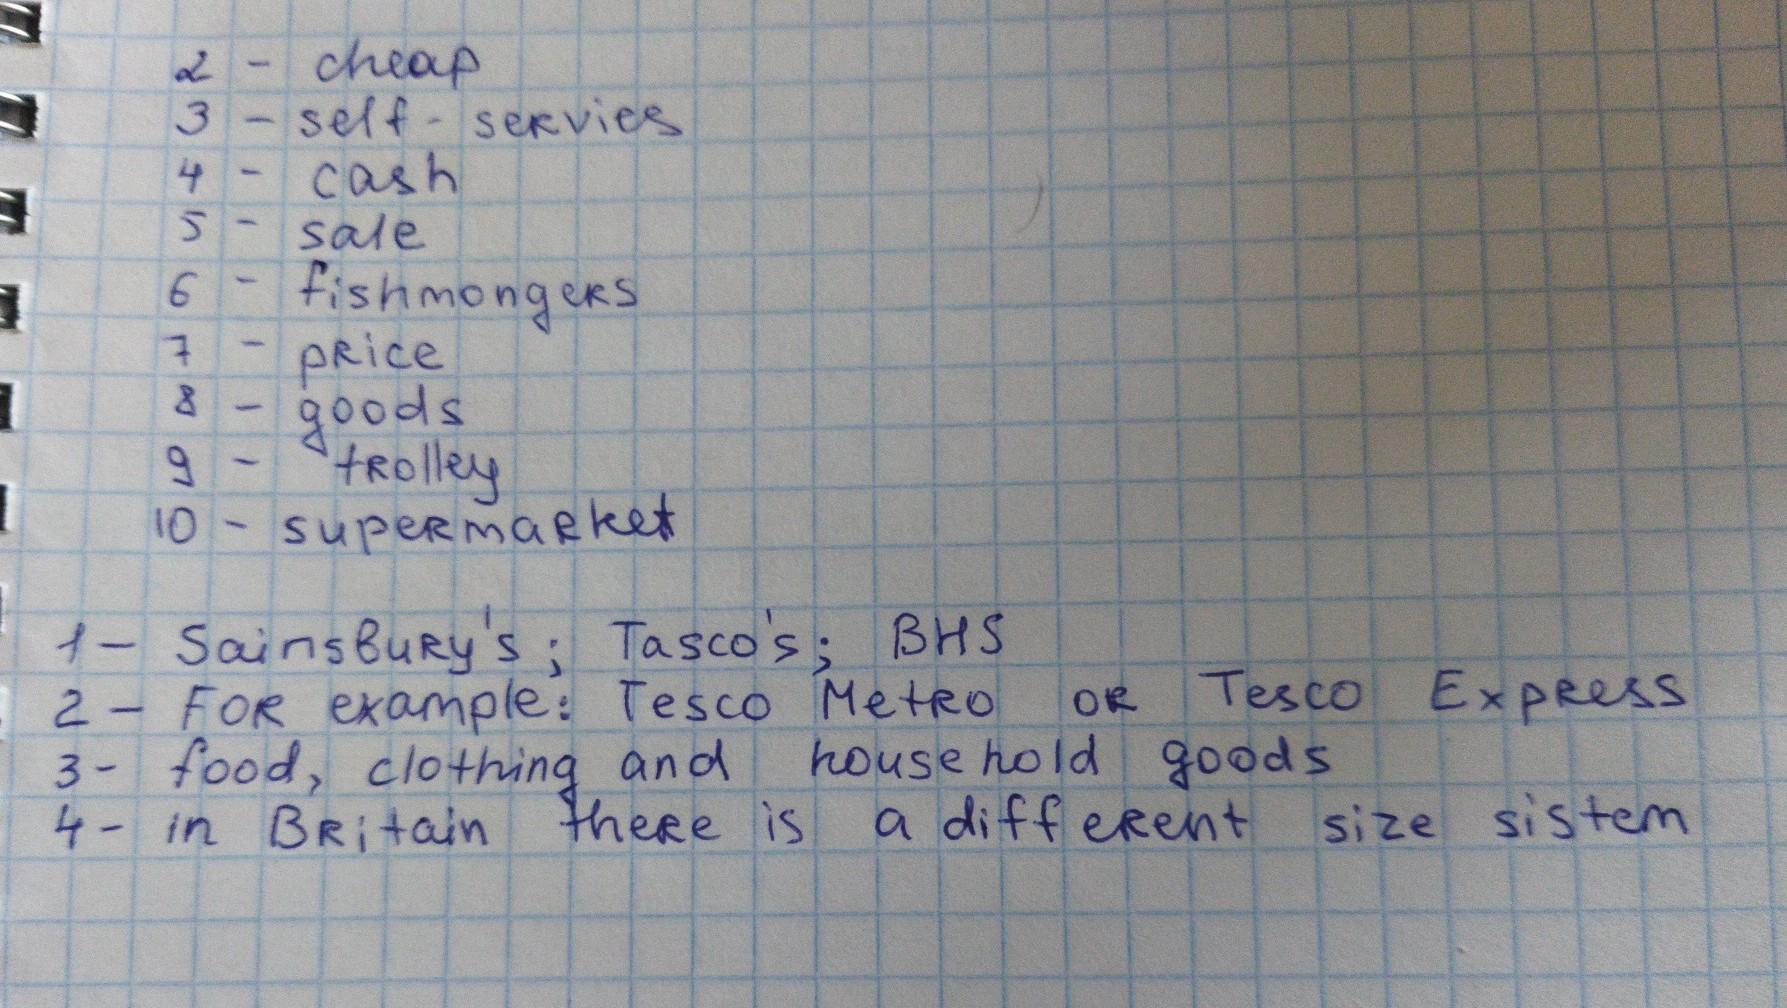 2 - cheap
3 - self-servies
4 - cash
5 - sale
6 - fishmongers
7 - price
8 - goods
9 - trolley
10 - supermarket
1 - Sainsbury's; Tasco's; BHS
2 - For example: Tesco Metro or Tesco Express
3 - food, clothing and household goods
4 - in Britain there is a different size sistem